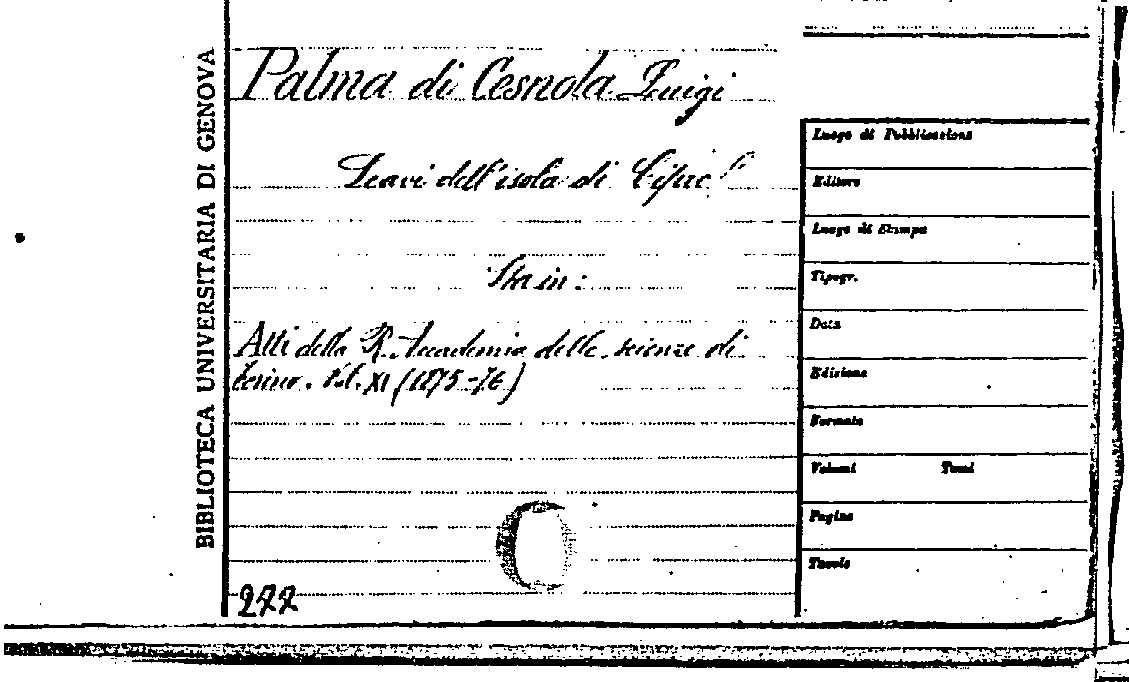 BIBLIOTECA UNIVERSITARIA DI GENOVA
Palma di Cesnola Luigi
Scavi dell'isola di Cipro
Sta in:
Atti della R. Accademia delle scienze di
Torino. Vol. XI (1875-76)
277
Luogo di Pubblicazione
Editore
Luogo di Stampa
Tipogr.
Data
Edizione
Formato
Volumi Tomi
Pagine
Tavole